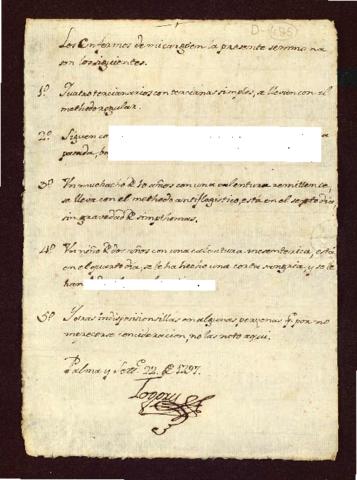 D-(185)
Los Enfermos de mi cargo en la presente semana
son los siguientes.
1º Quatro tercianarios con tercianas simples, se llevan con el
methodo regular.
2º Siguen co
a
pasada, ha
3º Un muchacho de 10 años con una calentura remittente,
se lleva con el methodo antiflogistico, está en el septo dia,
sin gravedad de simpthomas.
4º Un niño de dos años con una calentura mesenterica, está
en el quarto dia, se le ha hecho una corta sangria, y se le
han
5º Otras indisposicionsillas en algunas personas q.e por no
merecerse consideracion, no las noto aqui.
Palma y Sett.e 22. de 1797.
Togores